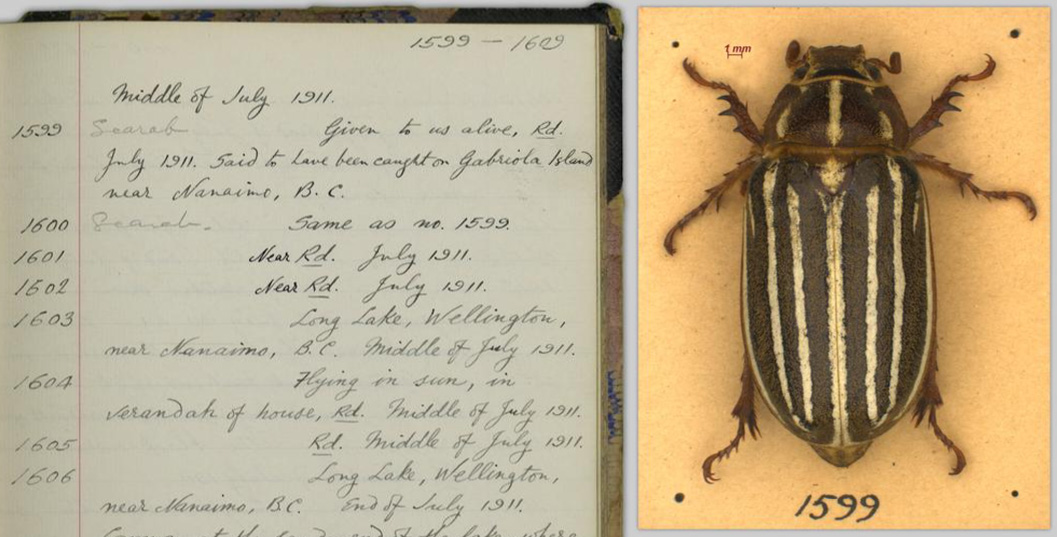 1599 – 1609
Middle of July 1911.
1599 Scarab Given to us alive, Rd.
July 1911. Said to have been caught on Gabriola Island
near Nanaimo, B.C.
1600 Scarab. Same as no. 1599.
1601 Near Rd. July 1911.
1602 Near Rd. July 1911.
1603 Long Lake, Wellington,
near Nanaimo, B.C. Middle of July 1911.
1604 Flying in sun, in
verandah of house, Rd. Middle of July 1911.
1605 Rd. Middle of July 1911.
1606 Long Lake, Wellington,
near Nanaimo, B.C. End of July 1911.
end of the lake, where
1 mm
1599